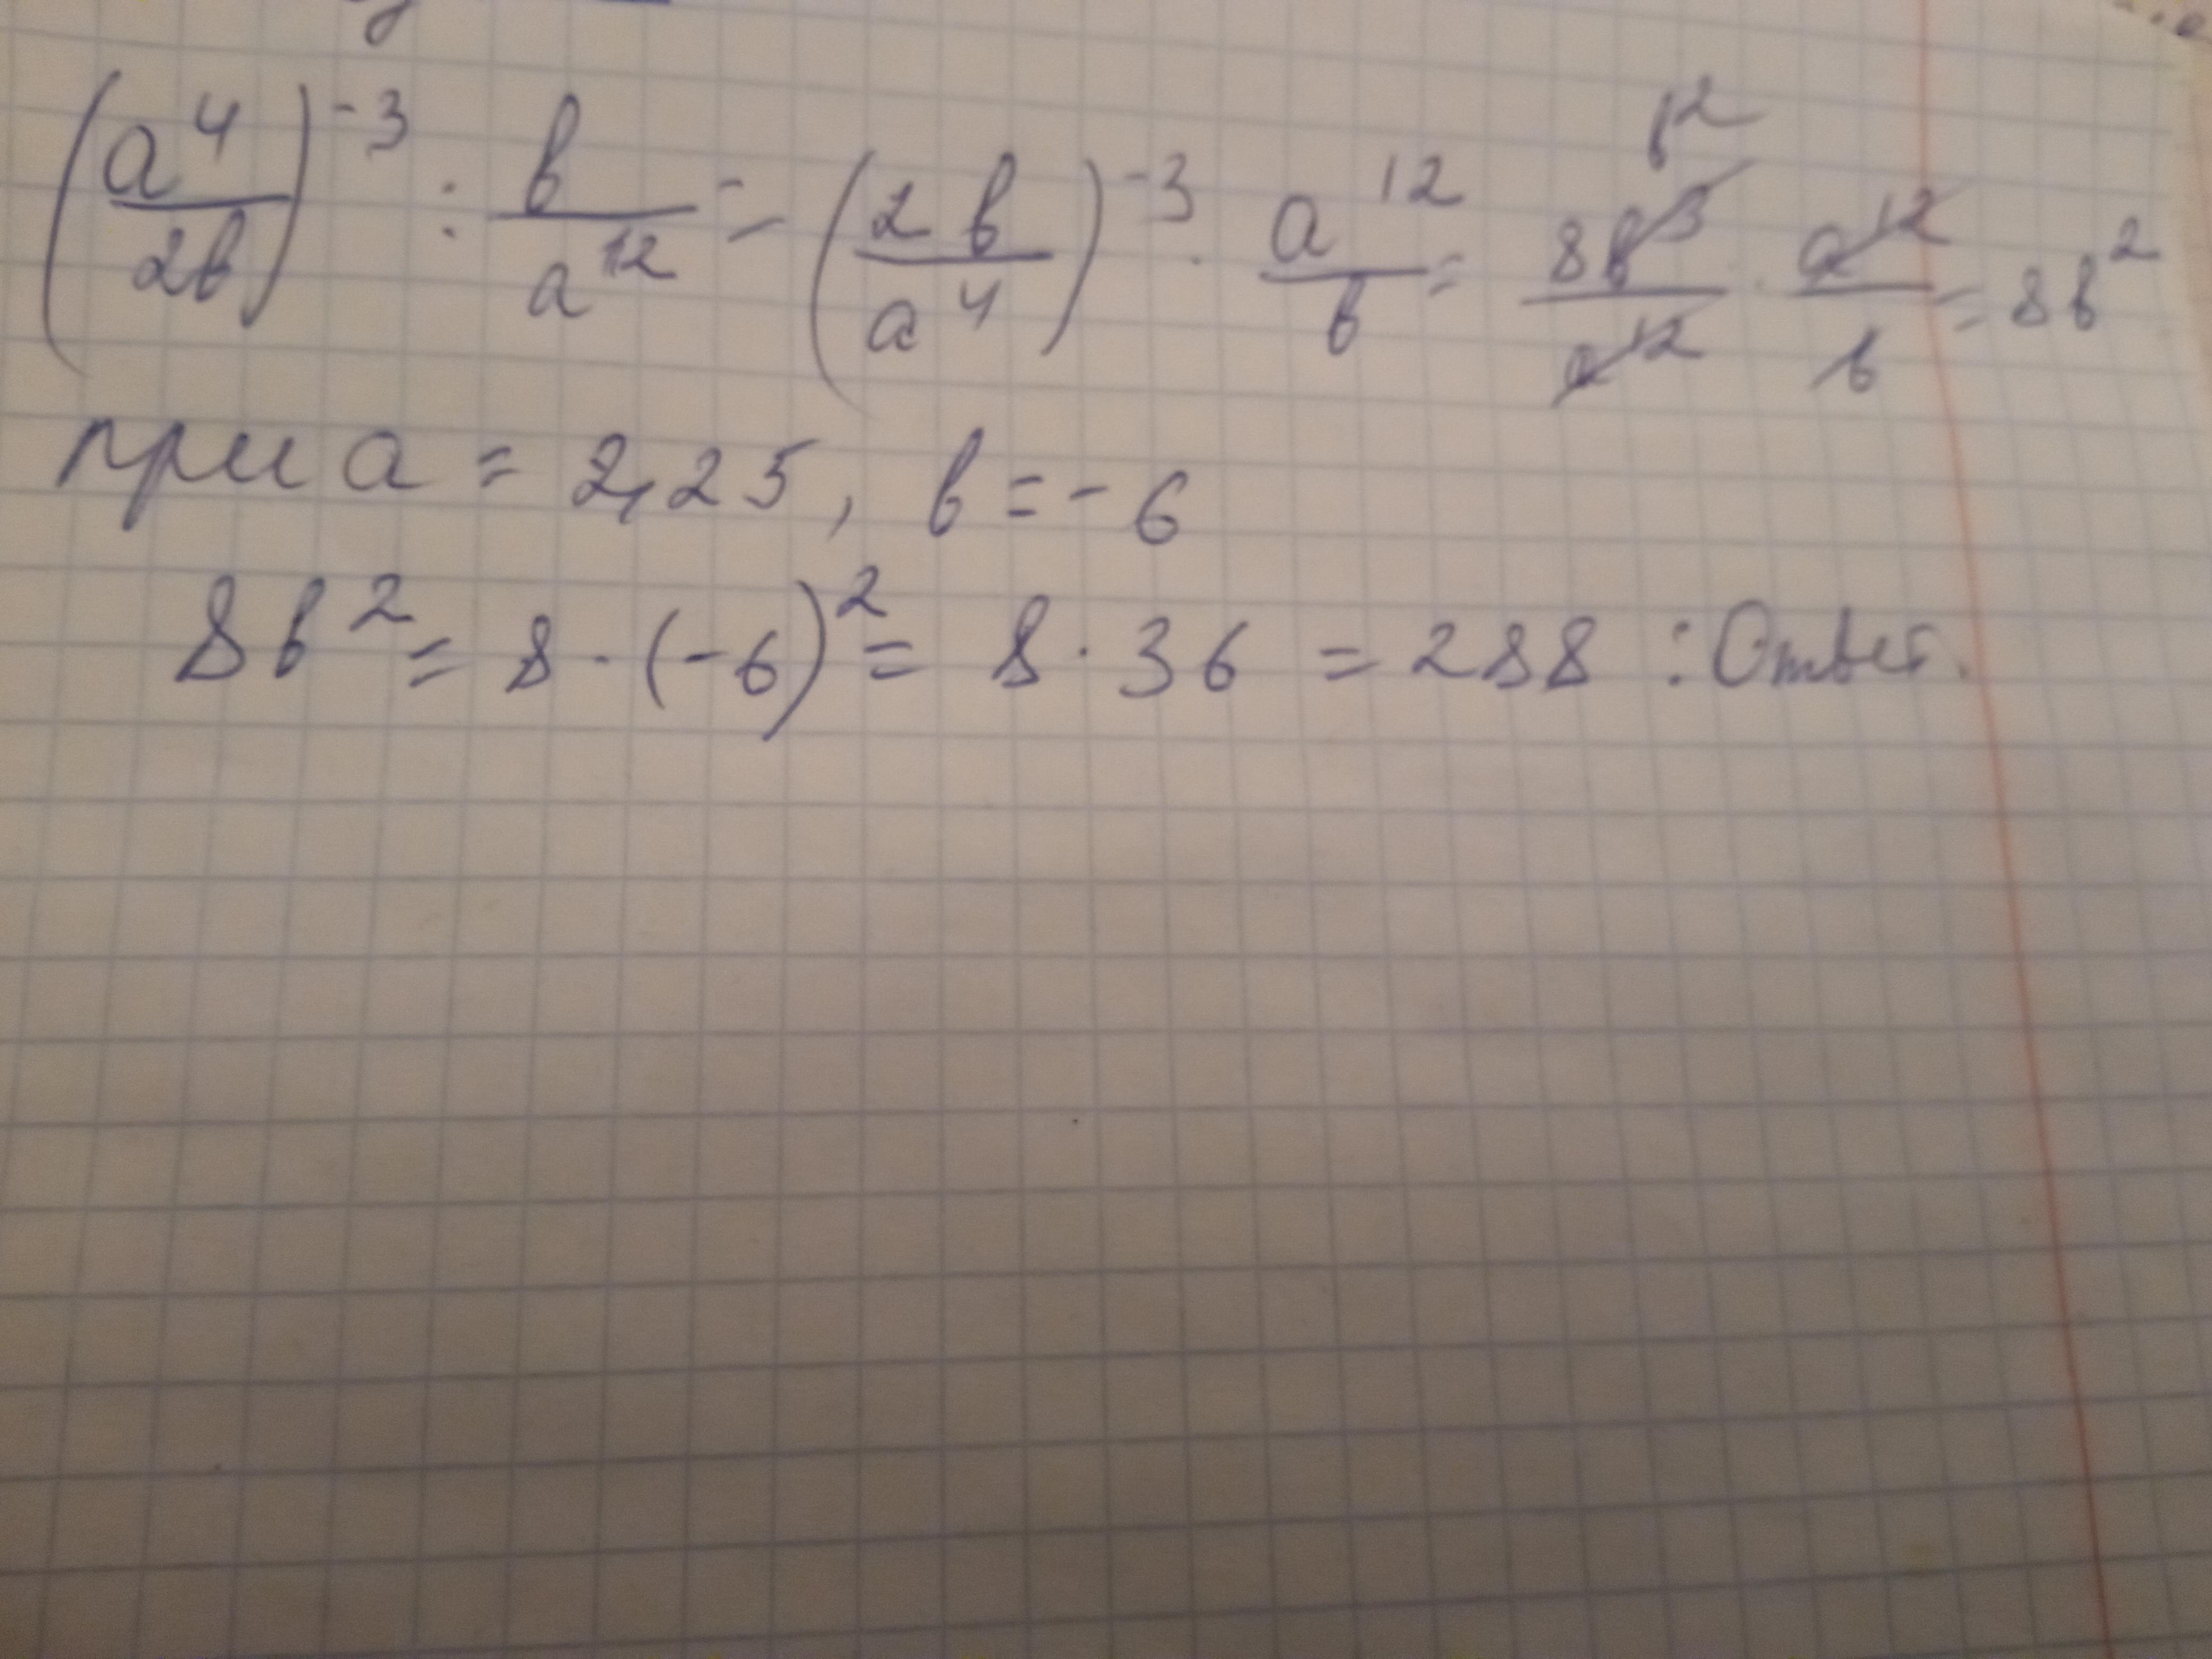 (a⁴/2в)⁻³ : в/a¹² = (2в/a⁴)⁻³ · a¹²/в = 8в³/a¹² · a¹²/в = 8в²
в²
при a = 2,25, в = -6
8в² = 8 · (-6)² = 8 · 36 = 288 : Ответ.